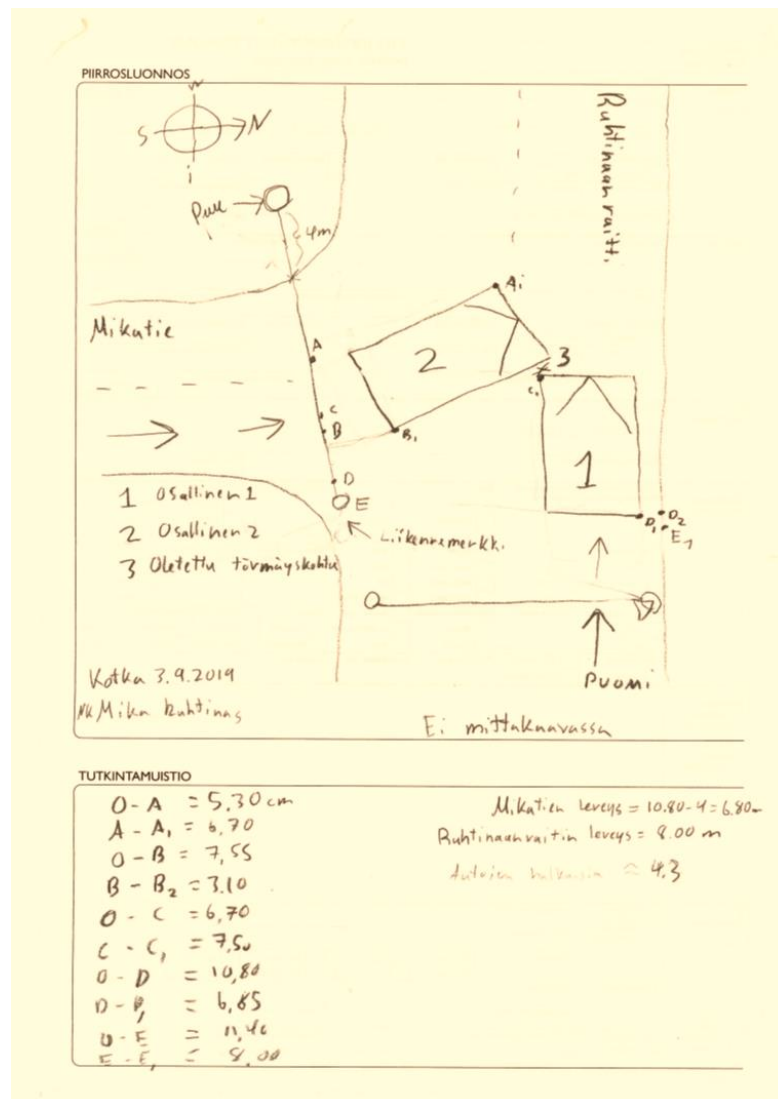 PIIRROSLUONNOS
S N
i
Puu
4m
Ruhtinaanraitti
Mikatie
A
A1
2
3
C
B
B1
C1
1
D
E
D1 D2
E1
1 Osallinen 1
2 Osallinen 2
3 Oletettu törmäyskohta
Liikennemerkki
PUOMI
Kotka 3.9.2019
Mika Ruhtinas
Ei mittakaavassa
TUTKINTAMUISTIO
O - A = 5,30 cm
A - A1 = 6,70
O - B = 7,55
B - B2 = 3.10
O - C = 6,70
C - C1 = 7,50
O - D = 10,80
D - D1 = 6,85
O - E = 11,40
E - E1 = 8,00
Mikatien leveys = 10.80-4=6.80m
Ruhtinaanraitin leveys = 8.00 m
≈ 4.3